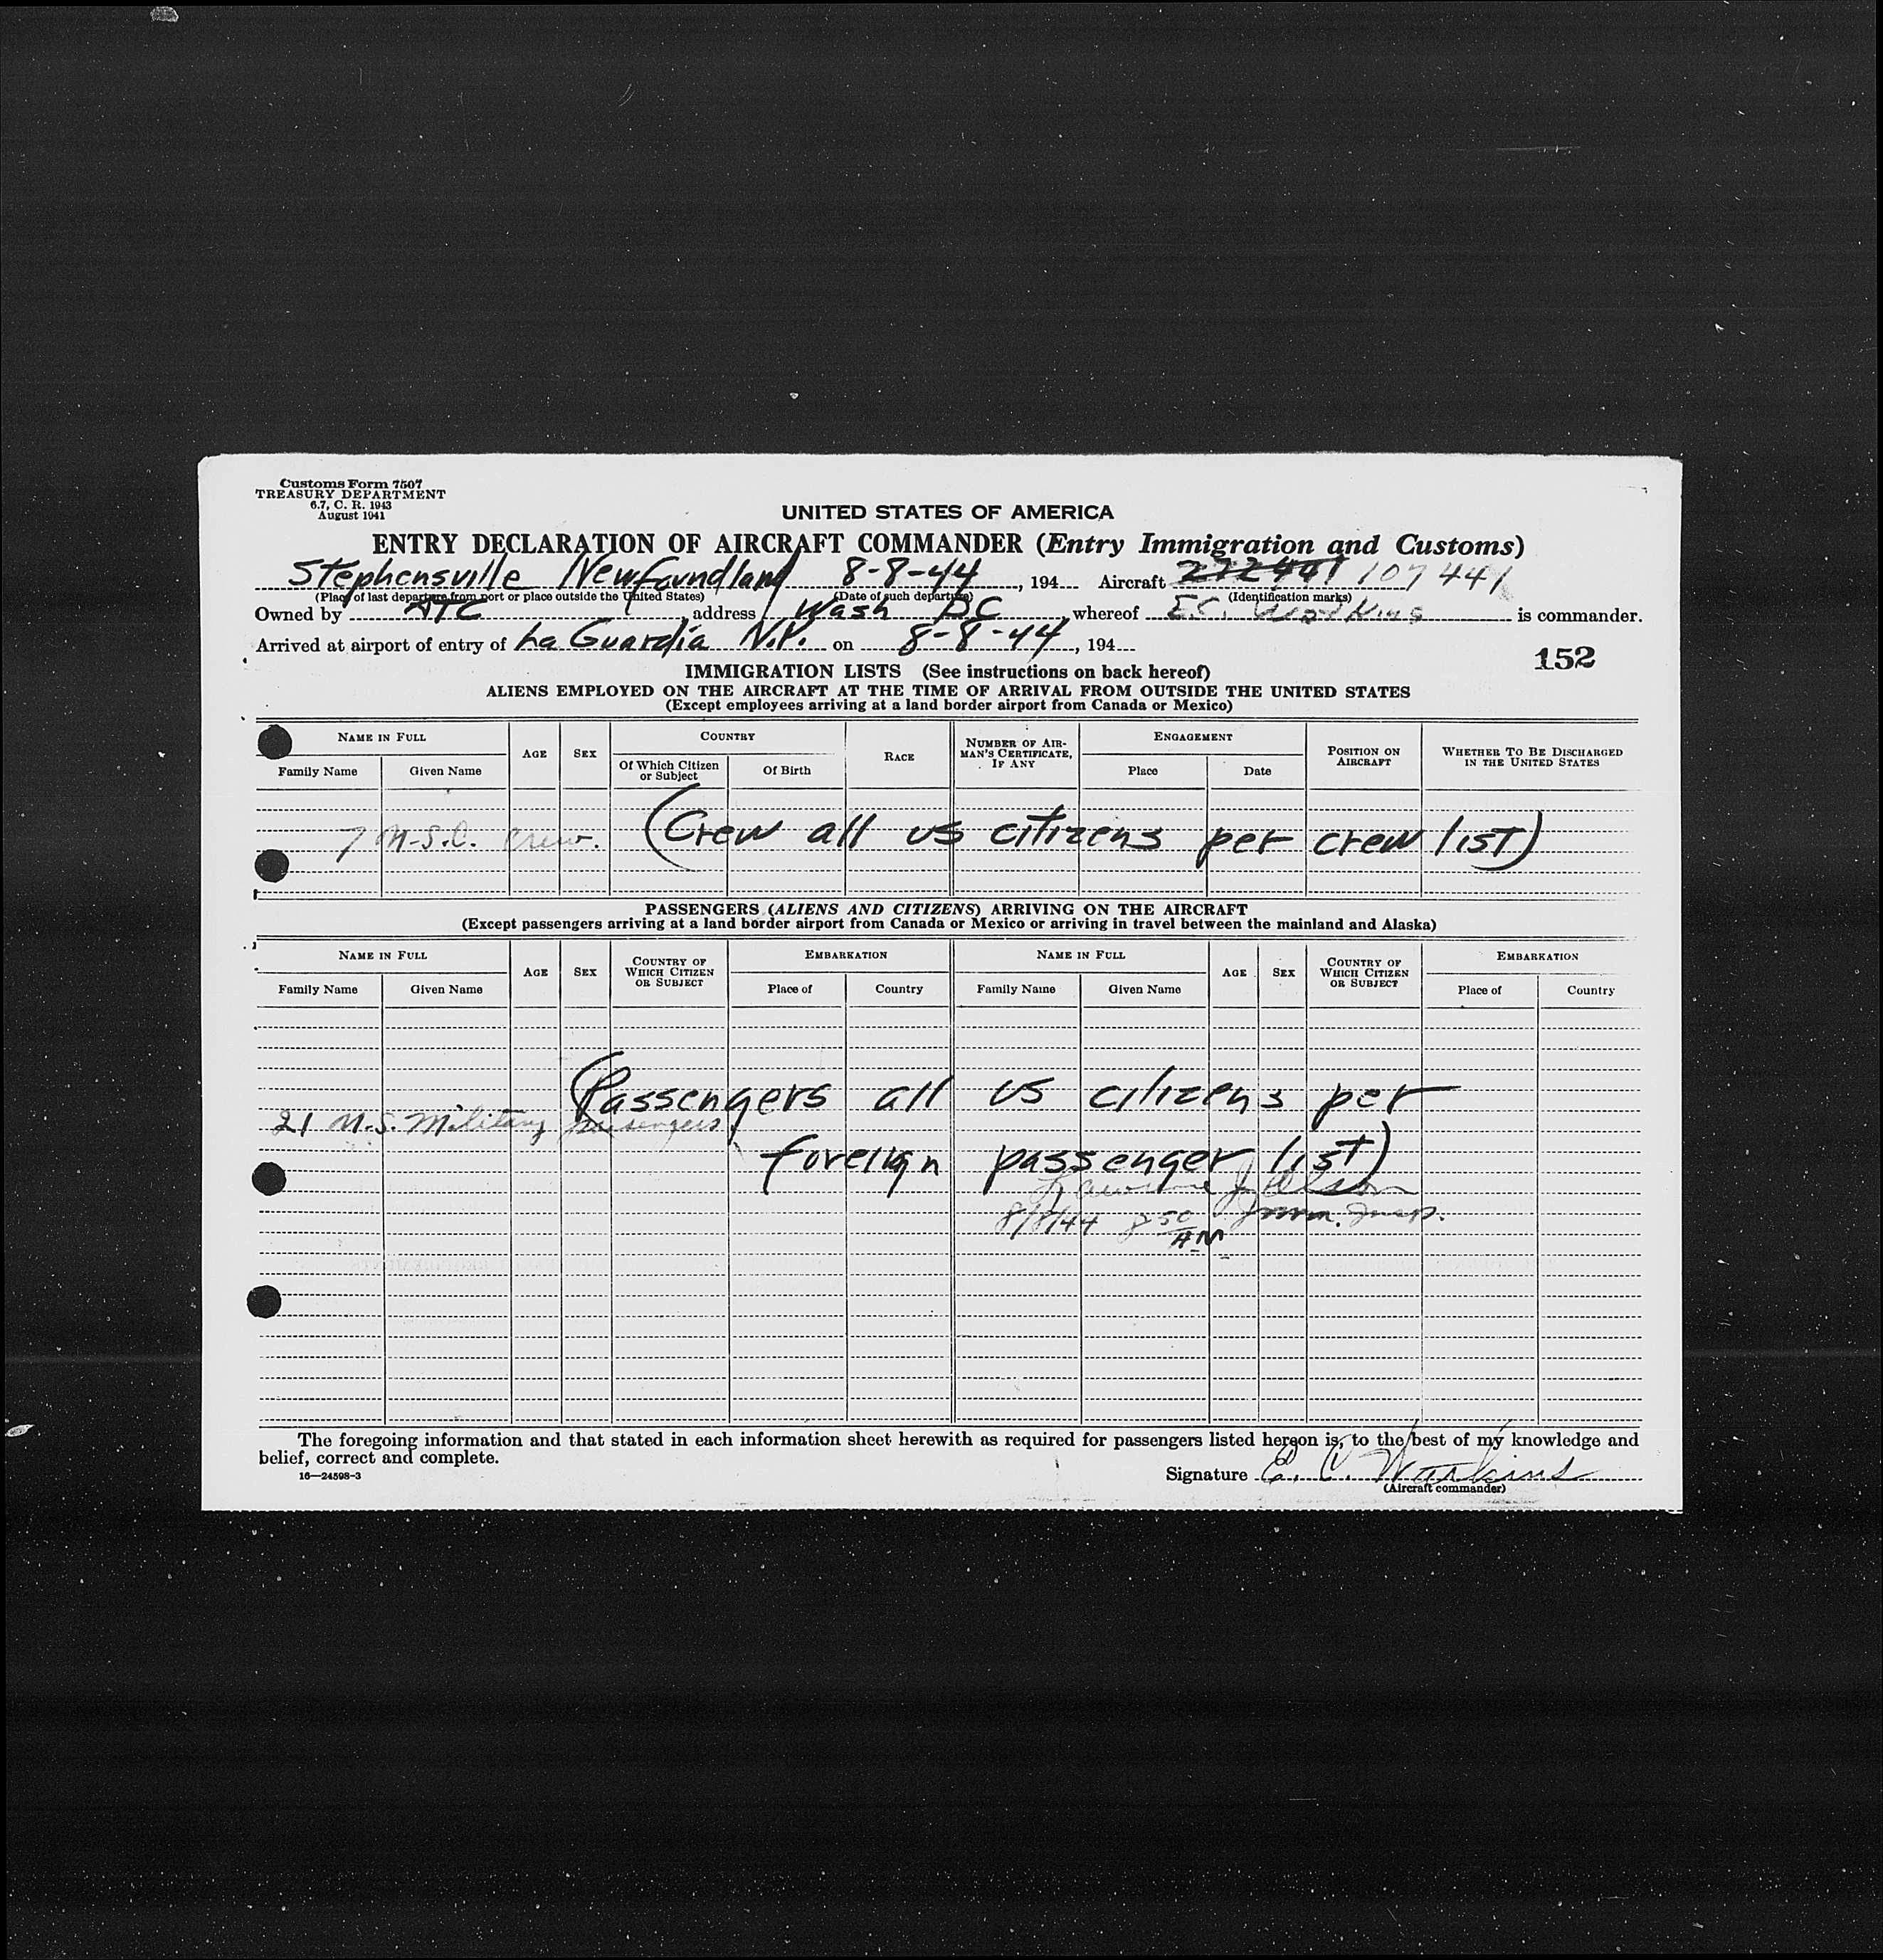 Customs Form 7507
TREASURY DEPARTMENT
6.7, C. R. 1943
August 1941
UNITED STATES OF AMERICA
ENTRY DECLARATION OF AIRCRAFT COMMANDER (Entry Immigration and Customs)
Stephensville Newfoundland 8-8-44, 194 Aircraft 272441 107441
(Place of last departure from port or place outside the United States) (Date of such departure) (Identification marks)
Owned by ATC address Wash DC whereof E.C. Watkins is commander.
Arrived at airport of entry of La Guardia N.Y. on 8-8-44, 194
152
IMMIGRATION LISTS (See instructions on back hereof)
ALIENS EMPLOYED ON THE AIRCRAFT AT THE TIME OF ARRIVAL FROM OUTSIDE THE UNITED STATES
(Except employees arriving at a land border airport from Canada or Mexico)
NAME IN FULL AGE SEX COUNTRY RACE NUMBER OF AIRMAN'S CERTIFICATE, IF ANY ENGAGEMENT POSITION ON AIRCRAFT WHETHER TO BE DISCHARGED IN THE UNITED STATES
Family Name Given Name Of Which Citizen or Subject Of Birth Place Date
7 U.S.C. crew. (Crew all us citizens per crew list)
PASSENGERS (ALIENS AND CITIZENS) ARRIVING ON THE AIRCRAFT
(Except passengers arriving at a land border airport from Canada or Mexico or arriving in travel between the mainland and Alaska)
NAME IN FULL AGE SEX COUNTRY OF WHICH CITIZEN OR SUBJECT EMBARKATION NAME IN FULL AGE SEX COUNTRY OF WHICH CITIZEN OR SUBJECT EMBARKATION
Family Name Given Name Place of Country Family Name Given Name Place of Country
(Passengers all us citizens per
21 U.S. Military passengers
foreign passenger list)
Lawrence J. Olson
8/8/44 8 50 AM Imm. Insp.
The foregoing information and that stated in each information sheet herewith as required for passengers listed hereon is, to the best of my knowledge and
belief, correct and complete.
16—24598-3
Signature E. C. Watkins
(Aircraft commander)